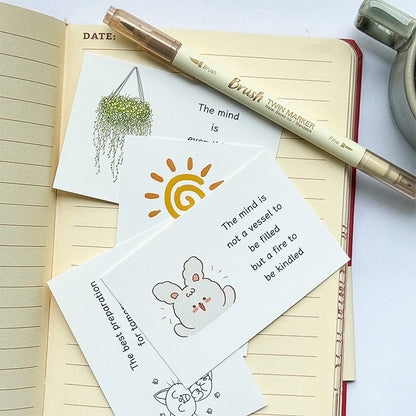 DATE:
Brush
Brush TWIN MARKER
Fine
The mind
is
The mind is
not a vessel to
be filled
but a fire to
be kindled
The best preparation
for